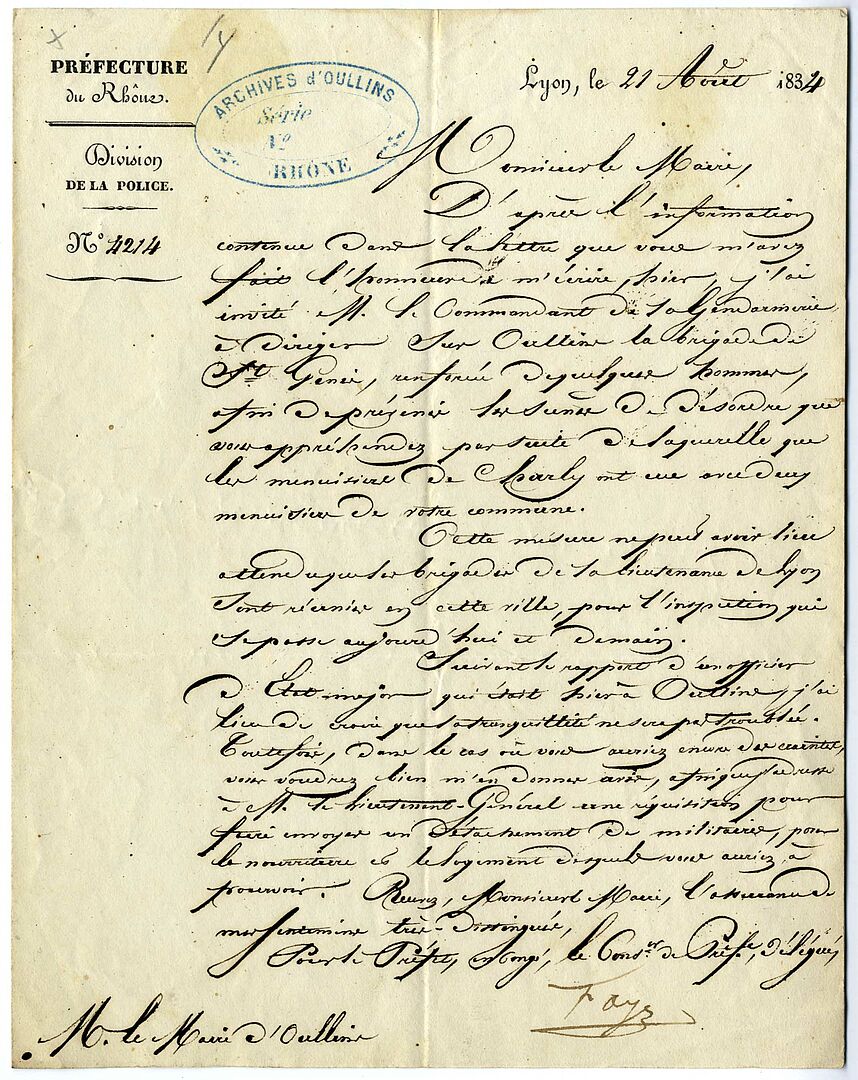 PRÉFECTURE
du Rhône.
Division
DE LA POLICE.
N° 4214
ARCHIVES d'OULLINS
Série
N°
RHÔNE
Lyon, le 21 Août 1834
Monsieur le Maire,
D'après l'information
contenue dans la lettre que vous m'avez
fait l'honneur de m'écrire, hier, j'ai
invité M. le Commandant de la Gendarmerie
à diriger sur Oullins la brigade de
St Genis, renforcée de quelques hommes,
afin de prévenir les scènes de désordre que
vous appréhendez par suite de la querelle que
les menuisiers de Charly ont eue avec deux
menuisiers de votre commune.
Cette mesure ne peut avoir lieu
attendu que les brigades de la lieutenance de Lyon
sont réunies en cette ville, pour l'inspection qui
se passe aujourd'hui et demain.
Suivant le rapport d'un officier
d'Etat-major qui était hier à Oullins, j'ai
lieu de croire que la tranquillité ne sera pas troublée.
Toutefois, dans le cas où vous auriez encore des craintes,
vous voudrez bien m'en donner avis, afin que j'adresse
à M. le Lieutenant-Général une réquisition pour
faire envoyer un détachement de militaires, pour
la nourriture et le logement desquels vous auriez à
pourvoir. Recevez, Monsieur le Maire, l'assurance de
mes sentimens très-distingués,
Pour le Préfet, en congé, le Cons.er de Préf.re, délégué,
Faye
M. le Maire d'Oullins